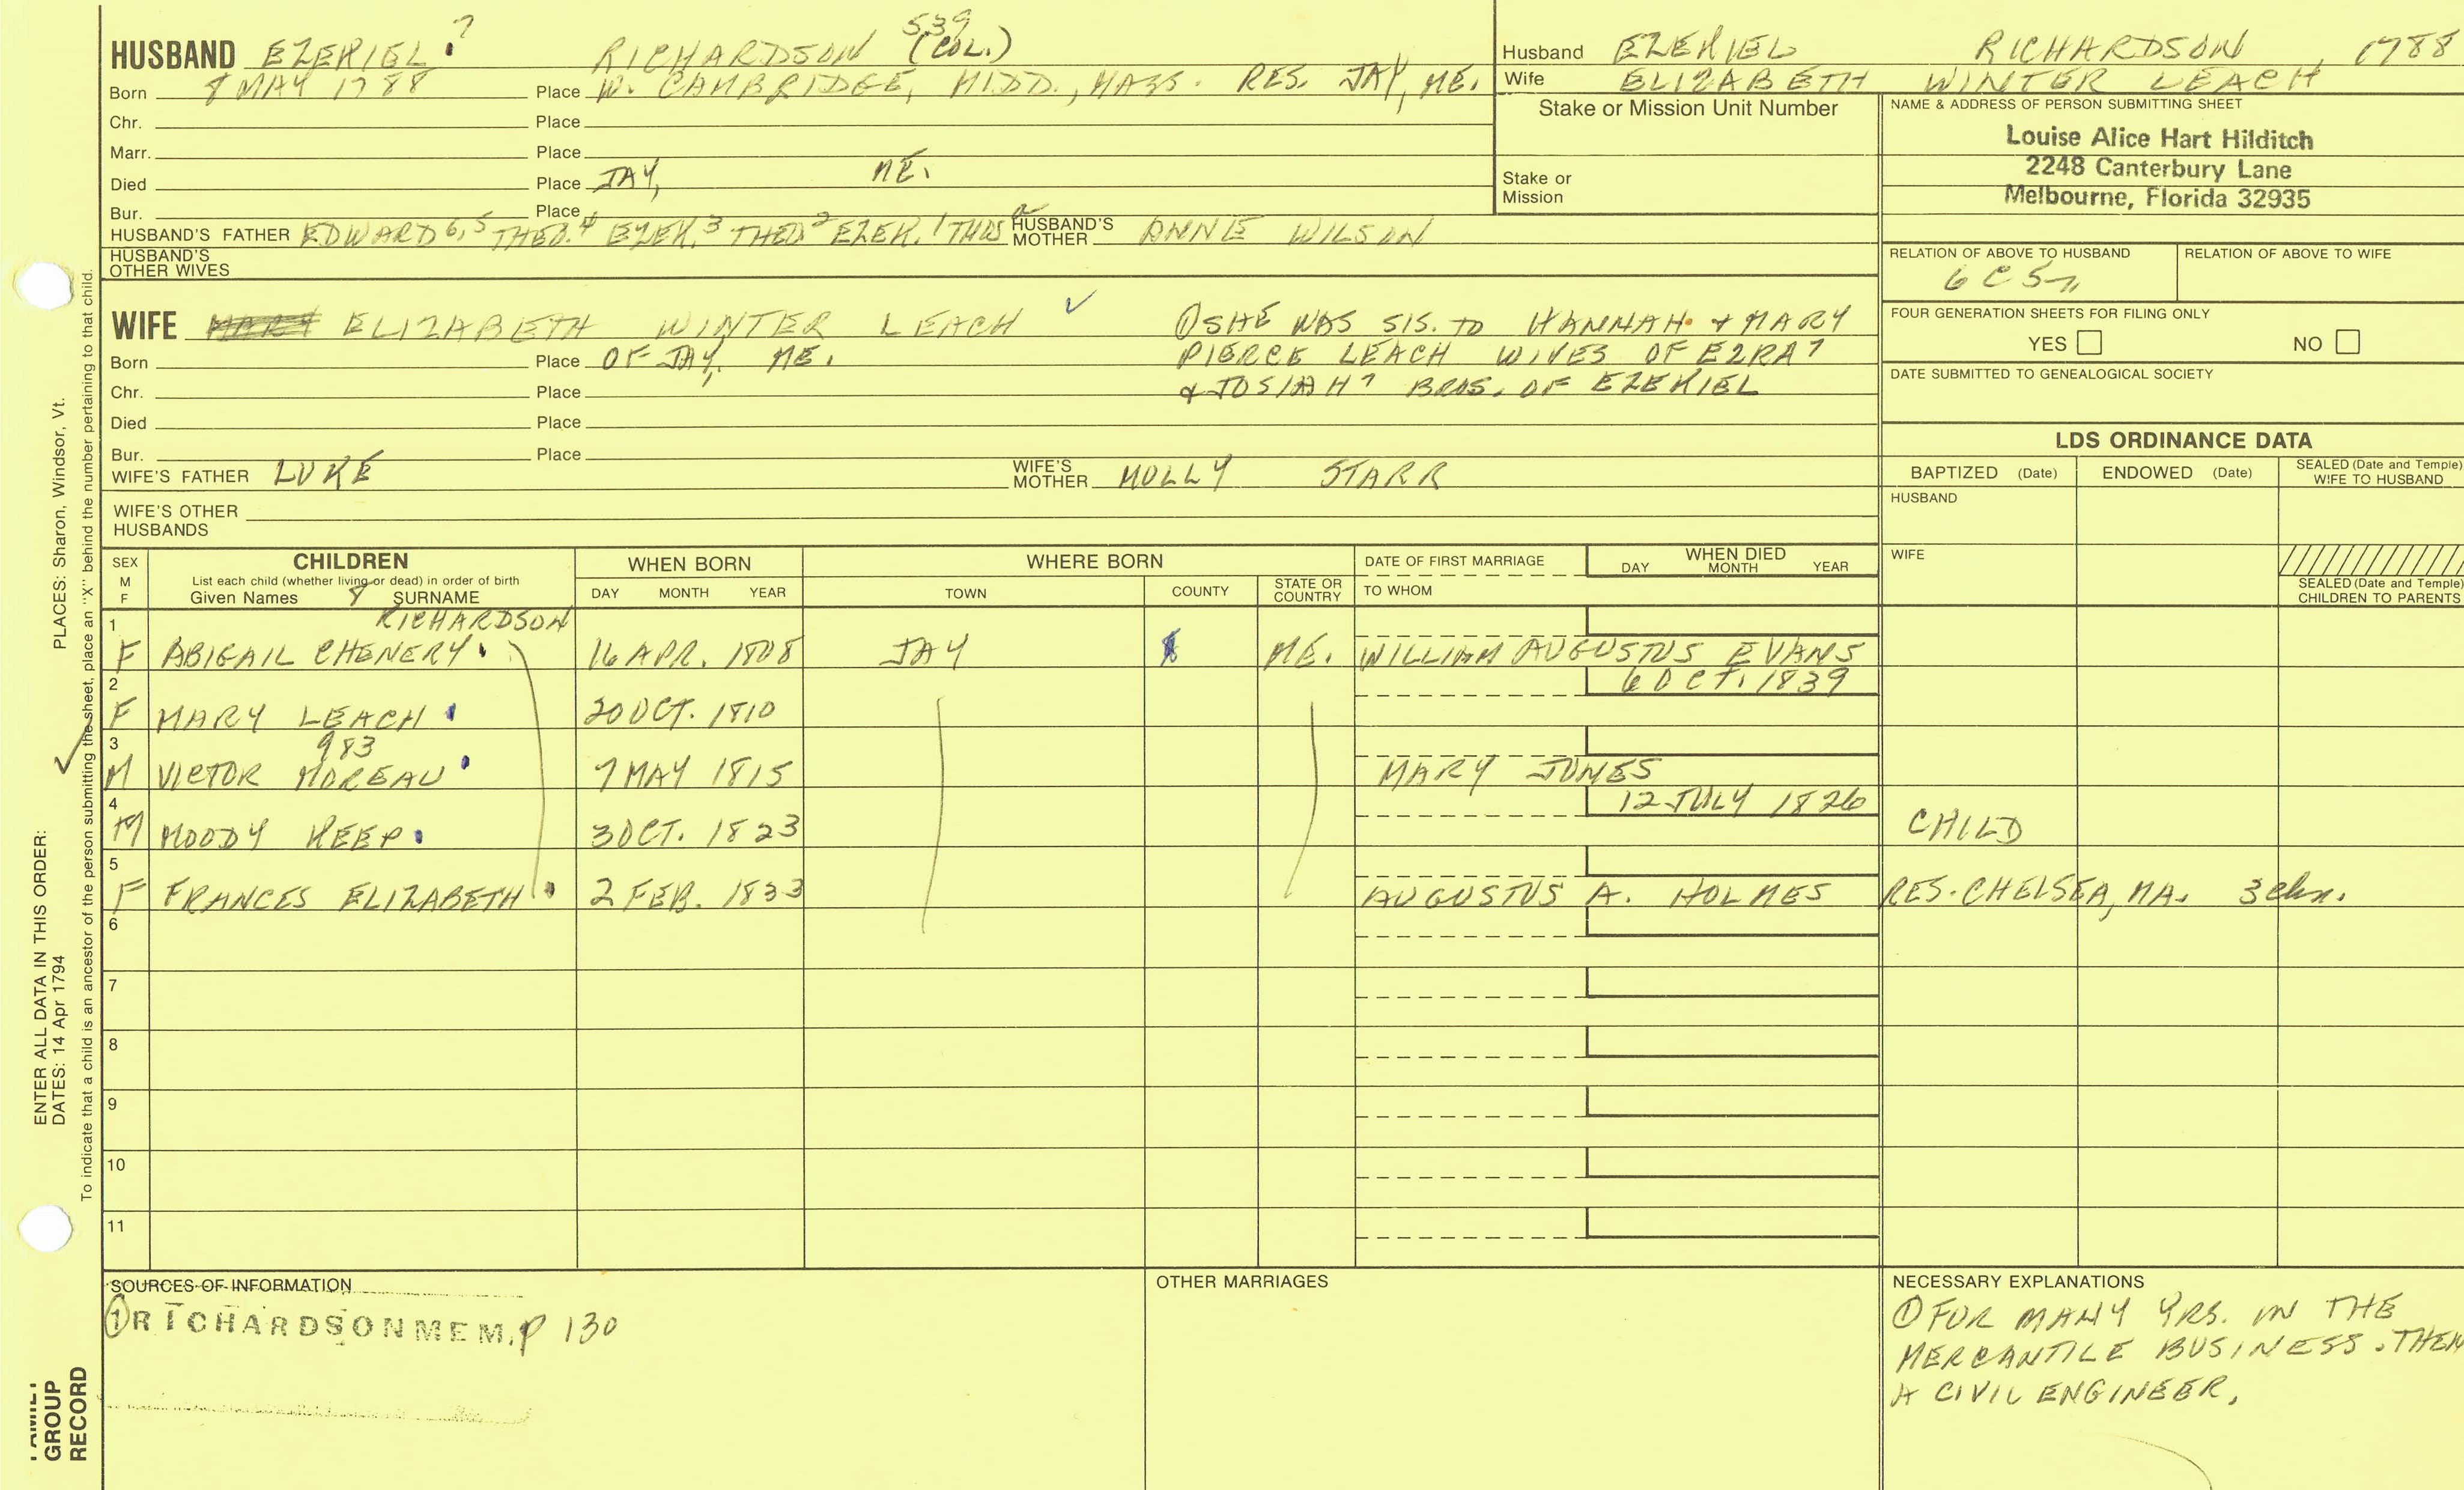 HUSBAND EZEKIEL 7 RICHARDSON 539 (COL.)
Born 8 MAY 1788 Place W. CAMBRIDGE, MIDD., MASS. RES. JAY, ME.
Chr. Place
Marr. Place
Died Place JAY, ME.
Bur. Place
HUSBAND'S FATHER EDWARD 6, 5 THEO. 4 EZEK. 3 THEO 2 EZEK. 1 THOS HUSBAND'S MOTHER ANNIE WILSON
HUSBAND'S OTHER WIVES
Husband EZEKIEL RICHARDSON, 1788
Wife ELIZABETH WINTER LEACH
Stake or Mission Unit Number
Stake or Mission
NAME & ADDRESS OF PERSON SUBMITTING SHEET
Louise Alice Hart Hilditch
2248 Canterbury Lane
Melbourne, Florida 32935
RELATION OF ABOVE TO HUSBAND
6C5
RELATION OF ABOVE TO WIFE
FOUR GENERATION SHEETS FOR FILING ONLY
YES NO
DATE SUBMITTED TO GENEALOGICAL SOCIETY
WIFE ELIZABETH WINTER LEACH ✓
① SHE WAS SIS. TO HANNAH & MARY
PIERCE LEACH WIVES OF EZRA 7
& JOSIAH 7 BROS. OF EZEKIEL
Born Place OF JAY, ME.
Chr. Place
Died Place
Bur. Place
WIFE'S FATHER LUKE WIFE'S MOTHER MOLLY STARR
WIFE'S OTHER HUSBANDS
LDS ORDINANCE DATA
BAPTIZED (Date) ENDOWED (Date) SEALED (Date and Temple) WIFE TO HUSBAND
HUSBAND
WIFE
SEALED (Date and Temple) CHILDREN TO PARENTS
SEX M F
CHILDREN
List each child (whether living or dead) in order of birth
Given Names 8 SURNAME
WHEN BORN
DAY MONTH YEAR
WHERE BORN
TOWN COUNTY STATE OR COUNTRY
DATE OF FIRST MARRIAGE
TO WHOM
WHEN DIED
DAY MONTH YEAR
1 RICHARDSON
F ABIGAIL CHENERY 16 APR. 1808 JAY ME. WILLIAM AUGUSTUS EVANS
2 6 OCT. 1839
F MARY LEACH 20 OCT. 1810
3 983
M VICTOR MOREAU 7 MAY 1815 MARY JONES
4 12 JULY 1826
M MOODY KEEP 3 OCT. 1823 CHILD
5
F FRANCES ELIZABETH 2 FEB. 1833 AUGUSTUS A. HOLMES RES. CHELSEA, MA. 3 chn.
6
7
8
9
10
11
SOURCES OF INFORMATION
① RICHARDSON MEM. P 130
OTHER MARRIAGES
NECESSARY EXPLANATIONS
① FOR MANY YRS. IN THE
MERCANTILE BUSINESS. THEN
A CIVIL ENGINEER.
ENTER ALL DATA IN THIS ORDER:
DATES: 14 Apr 1794 PLACES: Sharon, Windsor, Vt.
To indicate that a child is an ancestor of the person submitting the sheet, place an "X" behind the number pertaining to that child.
FAMILY
GROUP
RECORD